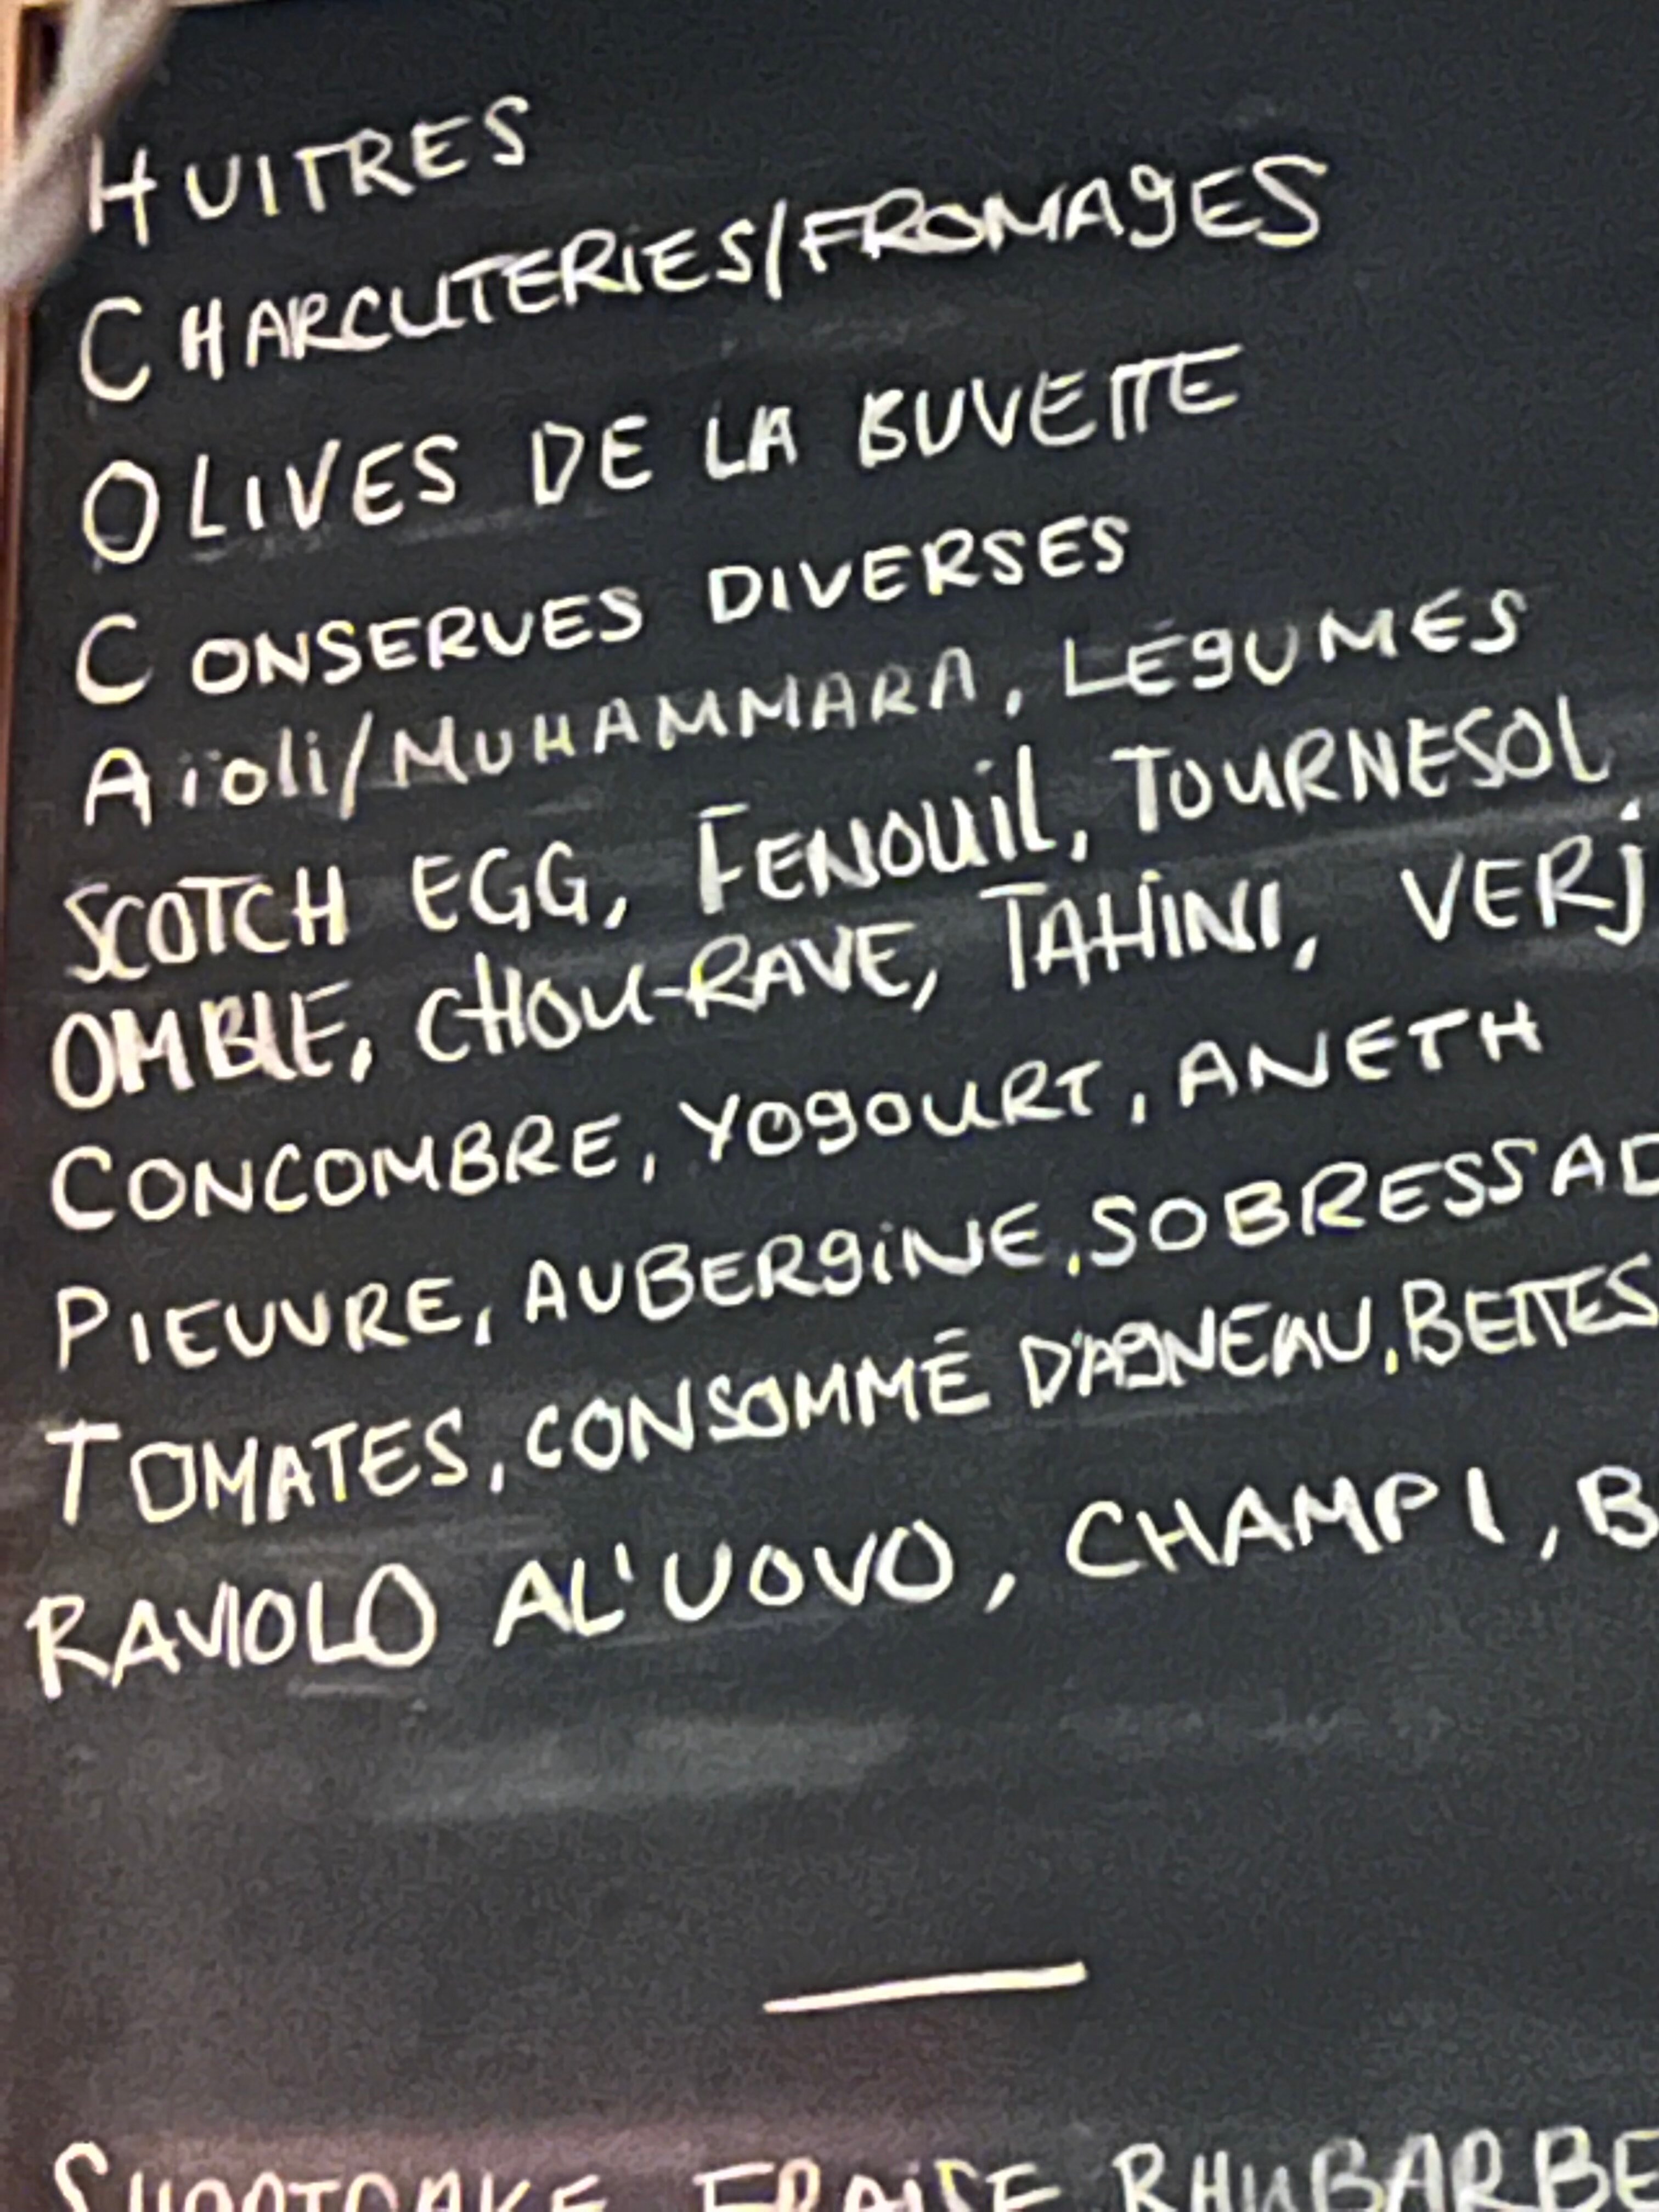 HUITRES
CHARCUTERIES/FROMAGES
OLIVES DE LA BUVETTE
CONSERVES DIVERSES
Aïoli/MUHAMMARA, LÉGUMES
SCOTCH EGG, FENOUIL, TOURNESOL
OMBLE, CHOU-RAVE, TAHINI, VERJ
CONCOMBRE, YOGOURT, ANETH
PIEUVRE, AUBERGINE, SOBRESSAD
TOMATES, CONSOMMÉ D'AGNEAU, BETTES
RAVIOLO AL'UOVO, CHAMPI, B
SHORTCAKE FRAISE RHUBARBE